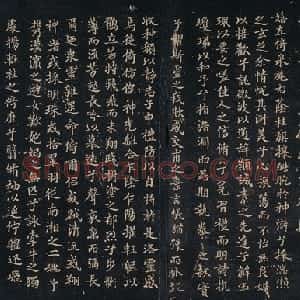 嬉左倚采旄右蔭桂旗攘皓腕於神滸兮採湍瀨
之玄芝余情悅其淑美兮心振蕩而不怡無良媒
以接歡兮託微波以通辭願誠素之先達兮解玉
佩以要之嗟佳人之信脩兮羌習禮而明詩抗
瓊珶以和予兮指潛淵而為期執眷眷之款實
兮懼斯靈之我欺感交甫之棄言悵猶豫而狐疑
收和顏以靜志兮申禮防以自持於是洛靈感
焉徙倚彷徨神光離合乍陰乍陽擢輕軀以
鶴立若將飛而未翔踐椒塗之郁烈步蘅薄而
流芳超長吟以慕遠兮聲哀厲而彌長
爾乃衆靈雜遝命儔嘯侶或戲清流或翔
神渚或採明珠或拾翠羽從南湘之二妃兮
攜漢濱之遊女歎匏媧之無匹詠牽牛之獨
處揚輕袿之猗靡翳脩袖以延佇體迅飛
Shufaziliao.com